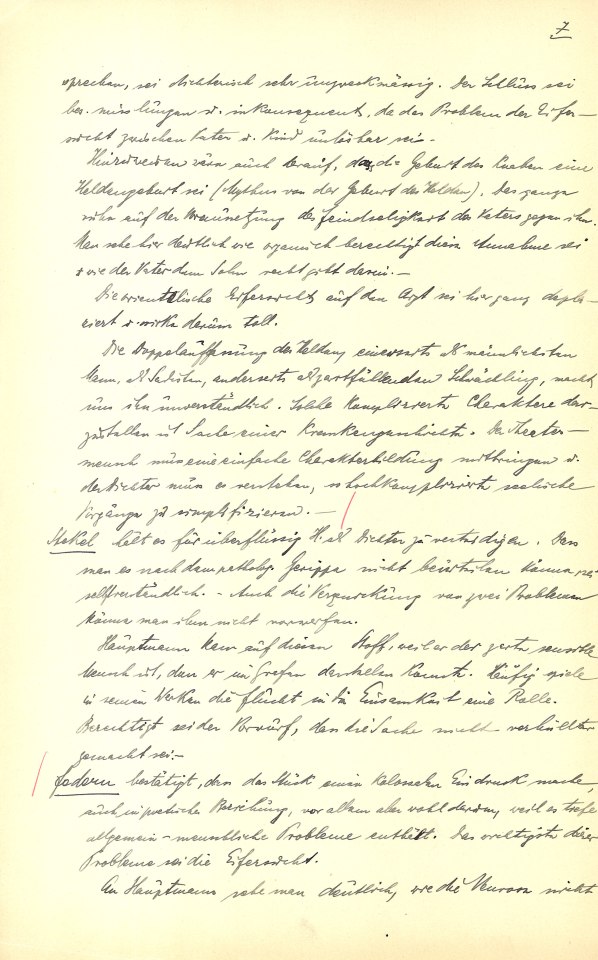 7
sprechen, sei dichterisch sehr unzweckmässig. Der Schluss sei
bes. misslungen u. inkonsequent, da das Problem der Eifer-
sucht zwischen Vater u. Kind unlösbar sei.-
Hinzuweisen wäre auch darauf, dass die Geburt des Knaben eine
Heldengeburt sei (Mythus von der Geburt des Helden). Das ganze
ruhe auf der Voraussetzung der Feindseligkeit des Vaters gegen ihn.
Man sehe hier deutlich wie organisch berechtigt diese Annahme sei
u wie der Vater dem Sohn recht gibt darin.-
Die orientalische Eifersucht auf den Arzt sei hier ganz depla-
ziert u. wirke darum toll.
Die Doppelauffassung des Helden, einerseits als männlichsten
Mann, als Sadisten, anderseits als zartfühlenden Schwächling, macht
uns ihn unverständlich. Solche komplizierte Charaktere dar-
zustellen ist Sache einer Krankengeschichte. Der Theater-
mensch muss eine einfache Charakterbildung mitbringen u.
der Dichter muss es verstehen, so hochkomplizierte seelische
Vorgänge zu simplifizieren.-
Stekel hält es für überflüssig H. als Dichter zu verteidigen. Dass
man es nach dem patholog. Gerippe nicht beurteilen könne, sei
selbstverständlich.- Auch die Verquickung von zwei Problemen
könne man ihm nicht vorwerfen.
Hauptmann kam auf diesen Stoff, weil er der zarte, sensible
Mensch ist, den er im Grafen darstellen konnte. Häufig spiele
in seinen Werken die Flucht in die Einsamkeit eine Rolle.
Berechtigt sei der Vorwurf, dass die Sache nicht verhüllter
gemacht sei.-
Federn bestätigt, dass das Stück einen kolossalen Eindruck mache,
auch in poetischer Beziehung, vor allem aber wohl darum, weil es tiefe
allgemein-menschliche Probleme enthält. Das wichtigste dieser
Probleme sei die Eifersucht.
An Hauptmann sehe man deutlich, wie die Neurose nicht